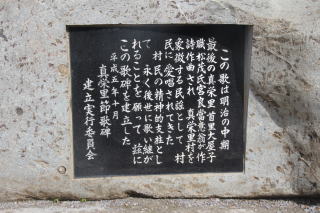 この歌は明治の中期
最後の真栄里首里大屋子
職松茂氏宮良當意翁が作
詩作曲され 真栄里村を
象徴する民謡として 村
民に愛唱されてきた
村民の精神的支柱とし
て 永く後世に歌い継が
れることを願って 茲に
この歌碑を建立した
平成五年十月
真栄里節歌碑
建立実行委員会